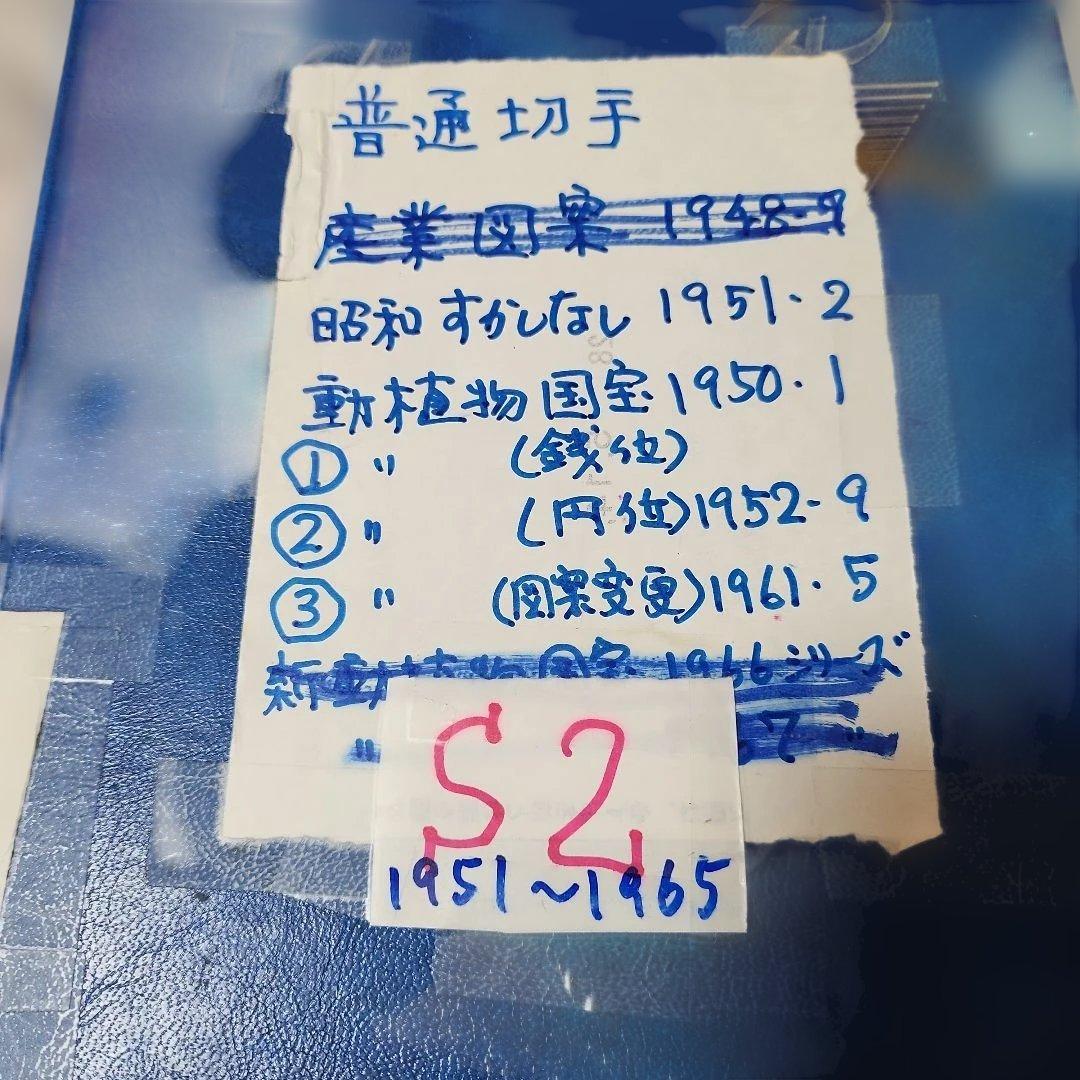 普通切手
産業図案 1948-9
昭和すかしなし 1951・2
動植物国宝 1950・1
① 〃 (銭位)
② 〃 (円位) 1952-9
③ 〃 (図案変更) 1961・5
新動植物国宝 1966シリーズ
〃 .7 〃
S2
1951～1965